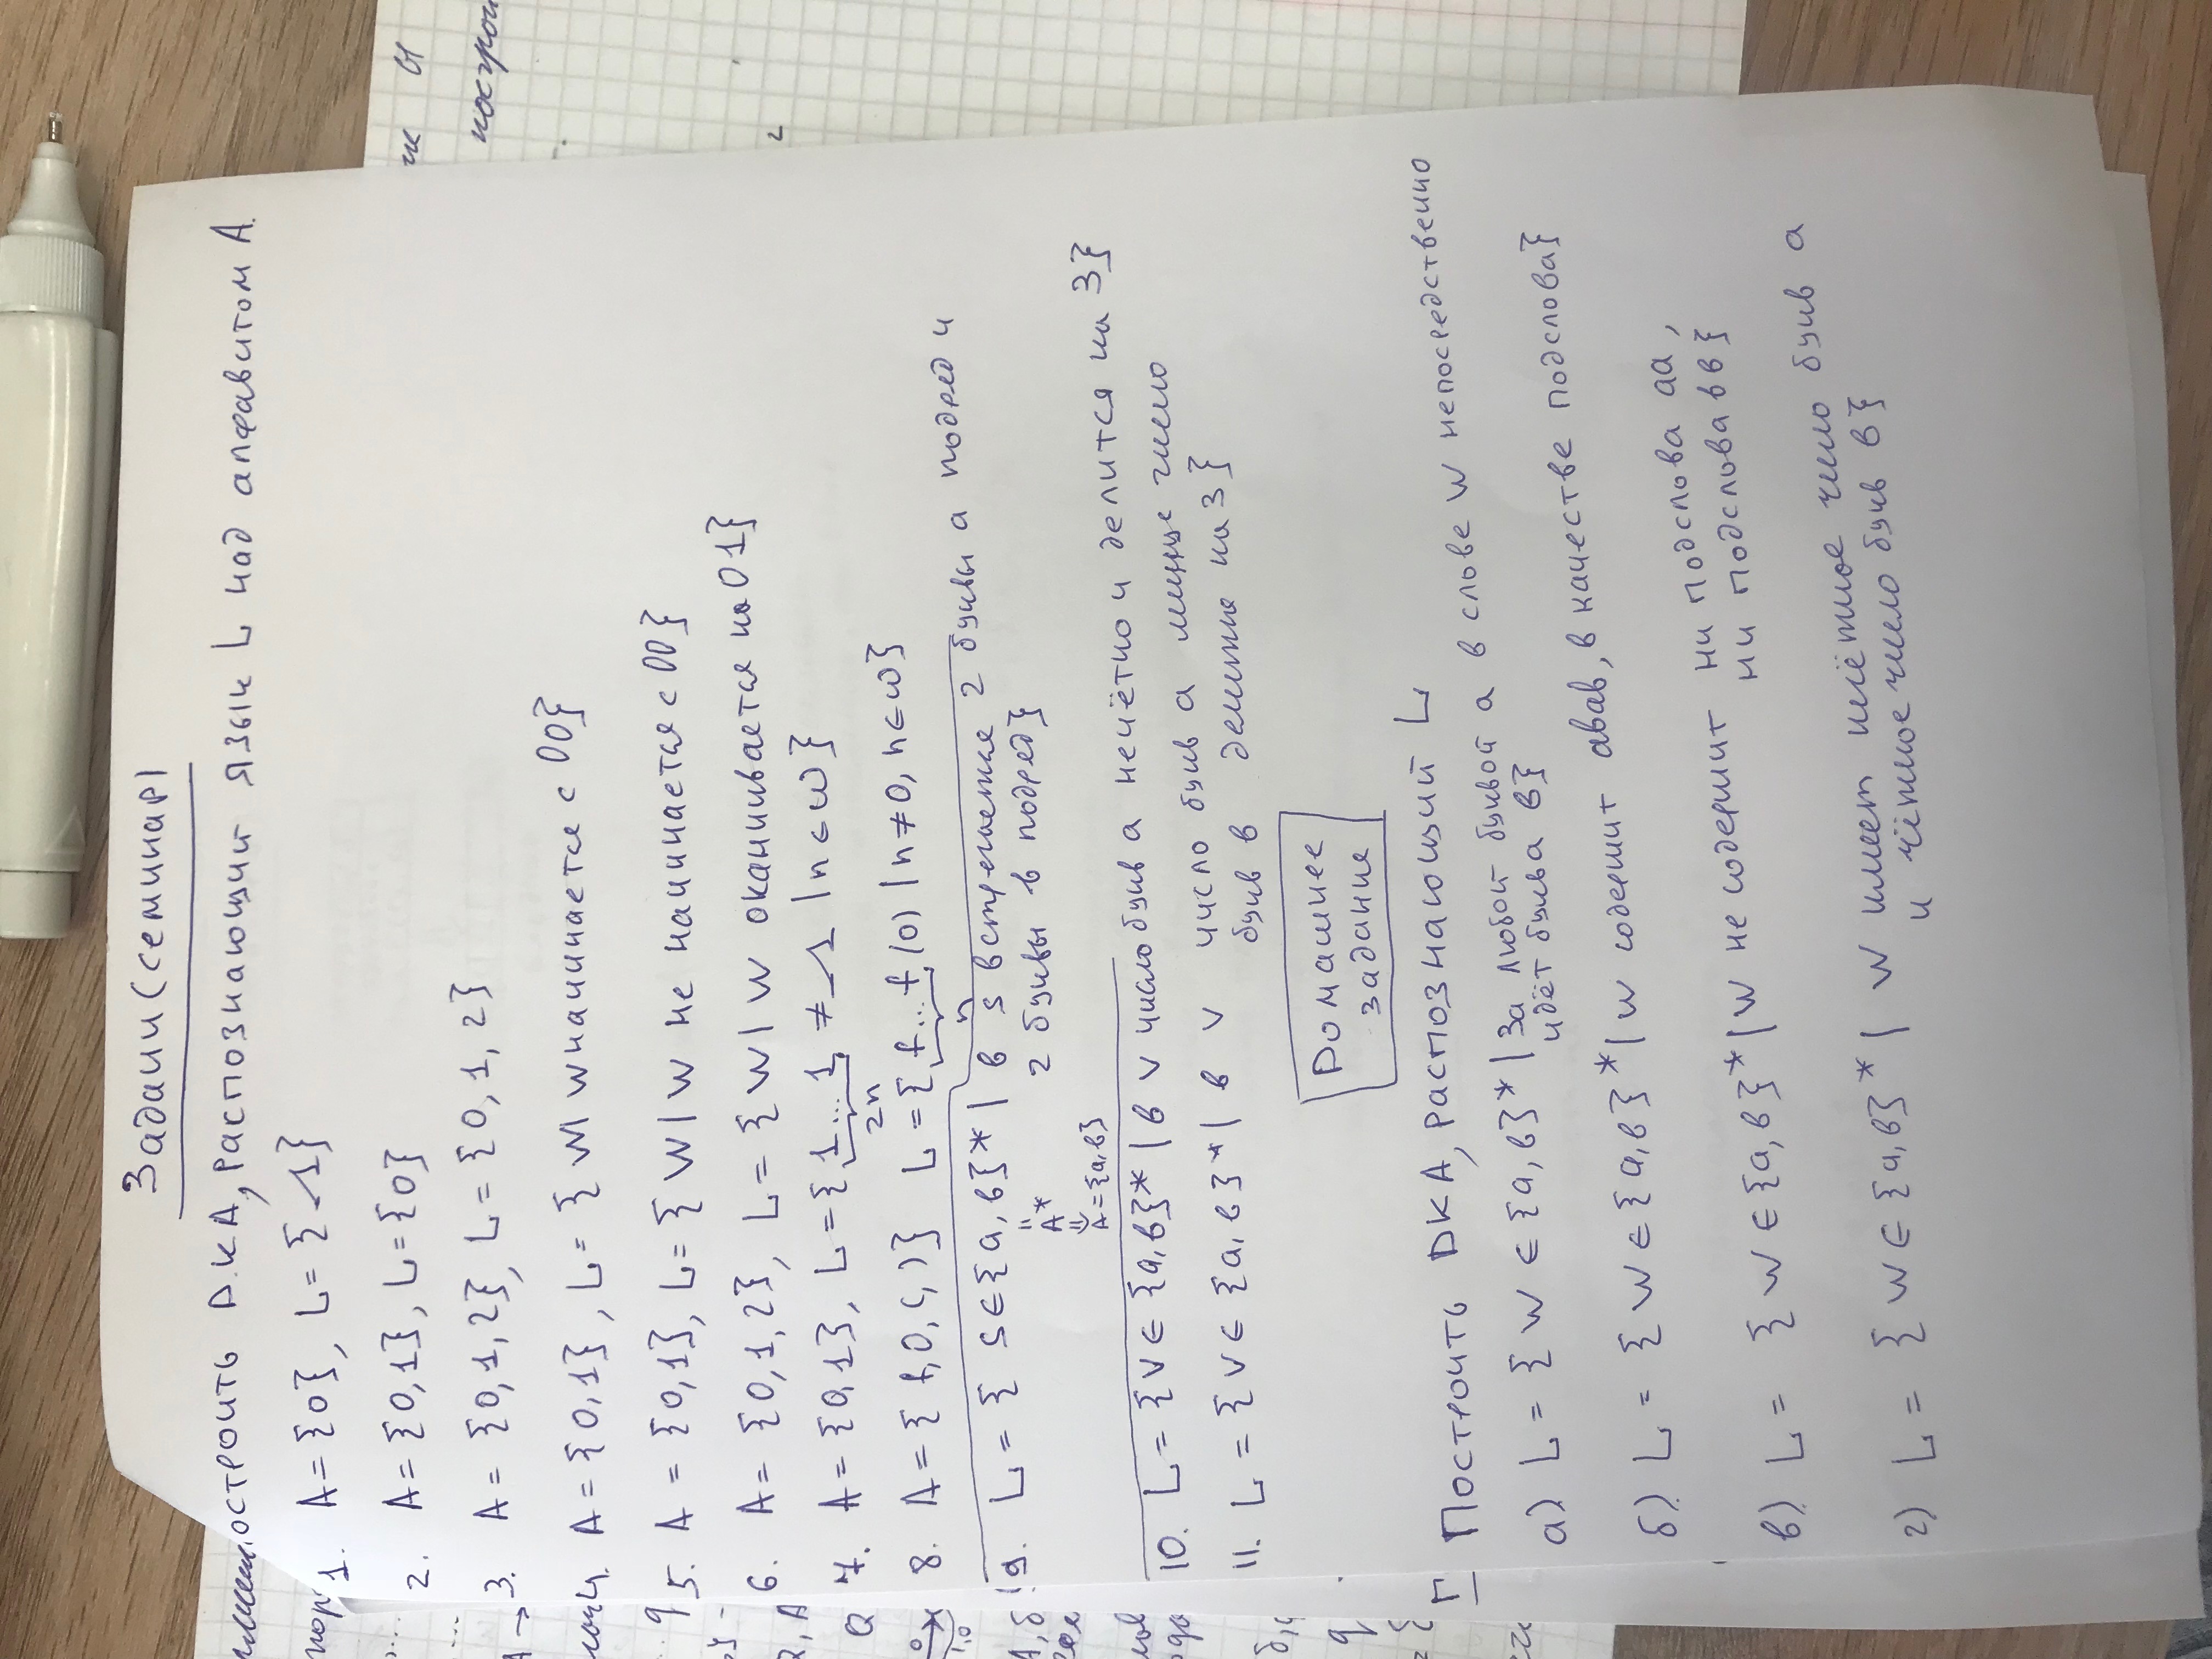 Задачи (семинар)
остроить ДКА, распознающий язык L над алфавитом A.
1. A = {0}, L = {Λ}
2. A = {0,1}, L = {0}
3. A = {0,1,2}, L = {0,1,2}
4. A = {0,1}, L = {w| w начинается с 00}
5. A = {0,1}, L = {w | w не начинается с 00}
6. A = {0,1,2}, L = {w | w оканчивается на 01}
7. A = {0,1}, L = {1...1 ≠ Λ | n ∈ ω}
2n
8. A = {f,0,(,)} L = {f...f(0) | n≠0, n∈ω}
n
9. L = { s∈{a,b}* | в s встречается 2 буквы a подряд и
2 буквы b подряд}
=
A*
=
A={a,b}
10. L = {v∈{a,b}* | в v число букв a нечётно и делится на 3}
11. L = {v∈{a,b}* | в v число букв a минус число
букв b делится на 3}
Домашнее
задание
Г Построить ДКА, распознающий L
а) L = {w∈{a,b}* | За любой буквой a в слове w непосредственно
идёт буква b}
б) L = {w∈{a,b}* | w содержит abab, в качестве подслова}
в) L = {w∈{a,b}* | w не содержит ни подслова aa,
ни подслова bb}
г) L = {w∈{a,b}* | w имеет нечётное число букв a
и чётное число букв b}
ик
построи
2